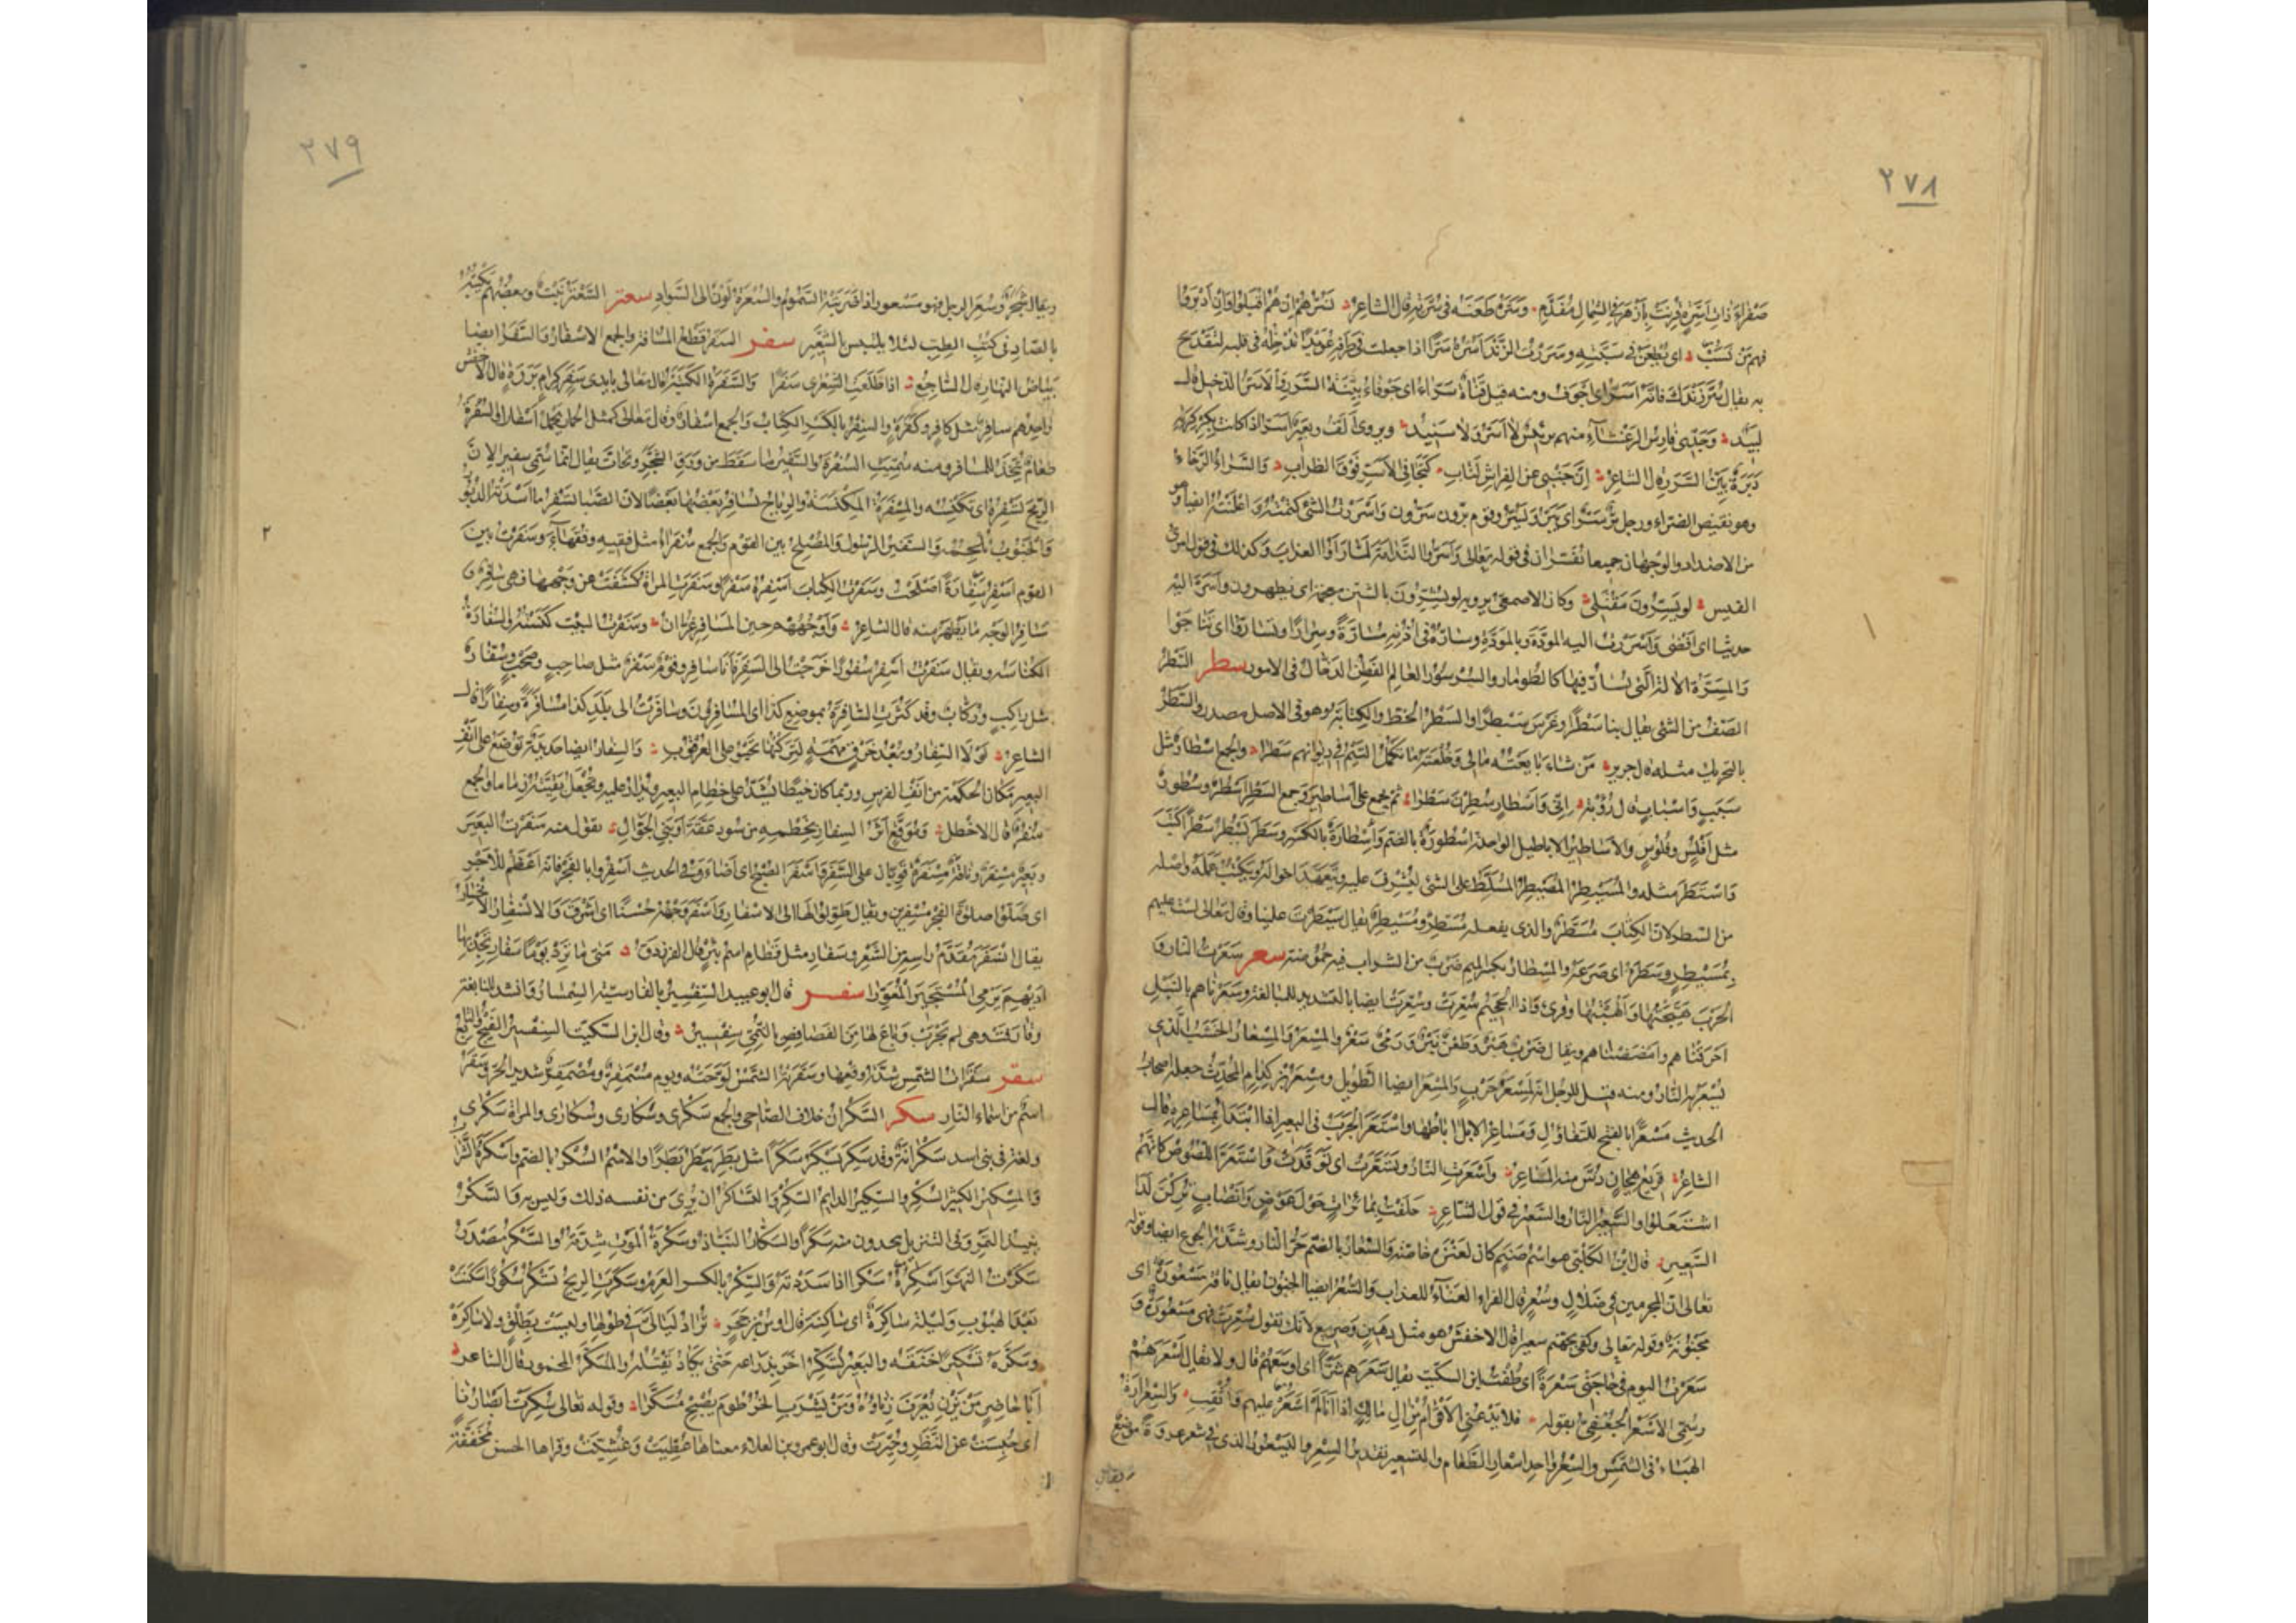 ٢٧٨
صفراء ذات أسرة قرنت بأزهر في الشمال مفدم وسره طعنه في سرته قال الشاعر نسرهم ان هم اقبلوا وان أدبروا
فهم من نسب اى نطعن في سبته وسررت الزند أسره سرا اذا جعلت في طرفه عويدا تدخله في قلبه لتقدح
به يقال سر زندك فانه أسر اى أجوف ومنه قيل قناة سراء اى جوفاء بينة السرر والأسر الدخيل قال
لبيد وجدي فارس الرعشاء منهم رئيس لا أسر ولا سنيد ويروى ألف وبعير أسر اذا كانت بكركرته
دبرة بين السرر قال الشاعر ان جنبي عن الفراش لناب كتجافي الأسر فوق الظراب والسراء الرخاء
وهو نقيض الضراء ورجل بر سر اى يبر ويسر وقوم برون سرون وأسررت الشئ كتمته وأعلنته ايضا وهو
من الاضداد والوجهان جميعا يفسران في قوله تعالى وأسروا الندامة لما رأوا العذاب وكذلك في قول امرئ
القيس لو يسرون مقتلي وكان الاصمعي يرويه لو يشرون بالشين معجمة اى يظهرون وأسر اليه
حديثا اى أفضى وأسررت اليه المودة وبالمودة وساره في أذنه مسارة وسرارا وتساروا اى تناجوا
والمسرة الآلة التى يسار فيها كالطومار والسرسور العالم الفطن الدخال في الامور سطر السطر
الصف من الشئ يقال بنا سطرا وغرس سطرا والسطر الخط والكتابة وهو في الاصل مصدر والسطر
بالتحريك مثله قال جرير من شاء بايعته مالي وخلعته ما تكمل التيم في ديوانهم سطرا والجمع اسطار مثل
سبب واسباب قال رؤبة اني وأسطار سطرن سطرا ثم يجمع على أساطير وجمع السطر أسطر وسطور
مثل أفلس وفلوس والاساطير الاباطيل الواحد أسطورة بالضم وإسطارة بالكسر وسطر يسطر سطرا كتب
واستطر مثله والمسيطر والمصيطر المسلط على الشئ ليشرف عليه ويتعهد احواله ويكتب عمله واصله
من السطر لان الكتاب مسطر والذي يفعله مسطر ومسيطر يقال سيطرت علينا وقال تعالى لست عليهم
بمسيطر وسطره اى صرعه والمسطار بكسر الميم ضرب من الشراب فيه حموضة سعر سعرت النار و
الحرب هيجتها وألهبتها وقرئ واذا الجحيم سعرت وسعرت ايضا بالتشديد للمبالغة وسعرناهم بالنبل
احرقناهم وامضضناهم ويقال ضرب هبر وطعن نثر ورمي سعر والمسعر والمسعار الخشب الذي
تسعر به النار ومنه قيل للرجل انه لمسعر حرب والمسعر ايضا الطويل ومسعر بن كدام المحدث جعله اصحاب
الحديث مسعرا بالفتح للتفاؤل ومساعر الابل آباطها واستعر الجرب في البعير اذا ابتدأ بمساعره قال
الشاعر قريع هجان دس منه المساعر واستعرت النار وتسعرت اى توقدت واستعر اللصوص كانهم
اشتعلوا والسعير النار والسعير في قول الشاعر حلفت بمائرات حول عوض وأنصاب تركن لدى
السعير قال ابن الكلبي هو اسم صنم كان لعنزة خاصة والسعار بالضم حر النار وشدة الجوع ايضا وقوله
تعالى ان المجرمين في ضلال وسعر قال الفراء العناء للعذاب والسعر ايضا الجنون يقال ناقة مسعورة اى
مجنونة وقوله تعالى وكفى بجهنم سعيرا قال الاخفش هو مثل دهين وصريع لانك تقول سعرت فهي مسعورة و
سعرت اليوم في حاجتي سعرة اى طفت ابن السكيت يقال سعرهم شرا اى اوسعهم قال ولا يقال أسعرهم
وسمي الاسعر الجعفي بقوله فلا يدعني الاقوام من آل مالك اذا أنا لم أسعر عليهم وأثقب والسعرارة
الهباء في الشمس والسعر واحد اسعار الطعام والتسعير تقدير السعر واليستعور الذي في شعر عروة موضع
ويقال
٢٧٩
ويقال شجر وسعر الرجل فهو مسعور اذا ضربته السموم والسعرة لون الى السواد سعتر السعتر نبت وبعضهم يكتبه
بالصاد في كتب الطب لئلا يلتبس بالشعير سفر السفر قطع المسافة والجمع الاسفار والسفر ايضا
بياض النهار قال الساجع اذا طلعت الشعرى سفرا والسفرة الكتبة قال تعالى بايدي سفرة كرام بررة قال الاخفش
واحدهم سافر مثل كافر وكفرة والسفر بالكسر الكتاب والجمع أسفار وقال تعالى كمثل الحمار يحمل أسفارا والسفرة
طعام يتخذ للمسافر ومنه سميت السفرة والسفير ما سقط من ورق الشجر وتحات يقال انما سمي سفيرا لان
الريح تسفره اى تكنسه والمسفرة المكنسة والرياح تسافر بعضها بعضا لان الصبا تسفر ما أسدته الدبور
والجنوب تلحمه والسفير الرسول والمصلح بين القوم والجمع سفراء مثل فقيه وفقهاء وسفرت بين
القوم أسفر سفارة أصلحت وسفرت الكتاب أسفره سفرا وسفرت المرأة كشفت عن وجهها فهي سافر و
مسافر الوجه ما يظهر منه قال الشاعر وأوجههم حين المسافر غران وسفرت البيت كنسته والسفارة
الكناسة ويقال سفرت أسفر سفورا خرجت الى السفر فأنا سافر وقوم سفر مثل صاحب وصحب وسفار
مثل راكب وركاب وقد كثرت السافرة بموضع كذا اى المسافرون وسافرت الى بلد كذا مسافرة وسفارا قال
الشاعر لولا السفار وبعد خرق مهمه لتركتها تحبو على العرقوب والسفار ايضا حديدة توضع على أنف
البعير مكان الحكمة من انف الفرس وربما كان خيطا يشد على خطام البعير ويدار عليه ويجعل بقيته زماما والجمع
سفر قال الاخطل وموقع أثر السفار بخطمه من سود عقة أو بني الجوال تقول منه سفرت البعير
وبعير مسفر وناقة مسفرة قويان على السفر وأسفر الصبح اى أضاء وفي الحديث أسفروا بالفجر فانه اعظم للاجر
اى صلوا صلوة الفجر مسفرين ويقال طولوها الى الاسفار وأسفر وجهه حسنا اى أشرق والانسفار الانحسار
يقال انسفر مقدم راسه من الشعر وسفار مثل قطام اسم بئر قال الفرزدق متى ما ترد يوما سفار تجد بها
أديهم يرمي المستجيز المعورا سفسر قال ابو عبيد السفسير بالفارسية السمسار وانشد للنابغة
وقارفت وهي لم تجرب وباع لها من الفصافص بالنمي سفسير وقال ابن السكيت السفسير الفيج والتابع
سقر سقرات الشمس شدة وقعها وسقرته الشمس لوحته ويوم مسمقر ومصمقر شديد الحر وسقر
اسم من اسماء النار سكر السكران خلاف الصاحي والجمع سكرى وسكارى وسكارى والمرأة سكرى
ولغة في بني اسد سكرانة وقد سكر يسكر سكرا مثل بطر يبطر بطرا والاسم السكر بالضم وأسكره الشراب
والمسكير الكثير السكر والسكير الدايم السكر والتساكر ان يرى من نفسه ذلك وليس به والسكر
نبيذ التمر وفي التنزيل تتخذون منه سكرا والسكار النباذ وسكرة الموت شدته والسكر مصدر
سكرت النهر أسكره سكرا اذا سددته والسكر بالكسر العرم وسكرت الريح تسكر سكورا سكنت
بعد الهبوب وليلة ساكرة اى ساكنة قال اوس بن حجر تزاد ليالي في طولها وليست بطلق ولا ساكرة
وسكره تسكيرا خنقه والبعير يسكر اخر بذراعه حتى يكاد يقتله والمسكر المخمور قال الشاعر
أبا حاضر من يزن يعرف زناؤه ومن يشرب الخرطوم يصبح مسكرا وقوله تعالى سكرت أبصارنا
اى حبست عن النظر وحيرت وقال ابو عمرو بن العلاء معناها غطيت وغشيت وقراها الحسن مخففة